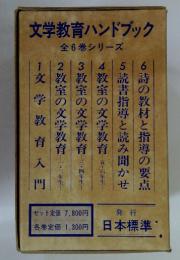 文学教育ハンドブック
全6巻シリーズ
6 詩の教材と指導の要点
5 読書指導と読み聞かせ
4 教室の文学教育(五・六年生)
3 教室の文学教育(三・四年生)
2 教室の文学教育
1 文学教育入門
セット定価 7,800円
各巻定価 1,300円
発行
日本標準